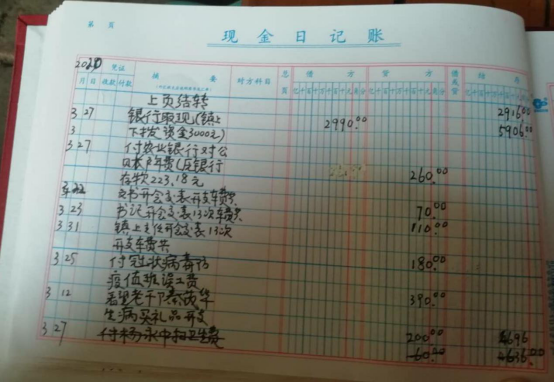 第 页
现金日记账
2020
凭证
月 日 收款 付款 摘要 对方科目 总页 借方 贷方 借或贷 结余
上页结转 2916.00
3 27 银行取现(镇上 2990.00 5906.00
3 下拨资金3000元)
3 27 付农业银行对公
年费(
存款223.18元 260.00
文书开会交表开支车费
3 23 书记开会交表13次车费共 70.00
3 31 镇上主任开会交表13次 110.00
开支车费共
3 25 付冠状病毒防 180.00
疫值班误工费
3 12 看望老干
生病买礼品开支 390.00
3 27 付杨永中扫卫生费 200.00 4696
60.00 4636.00